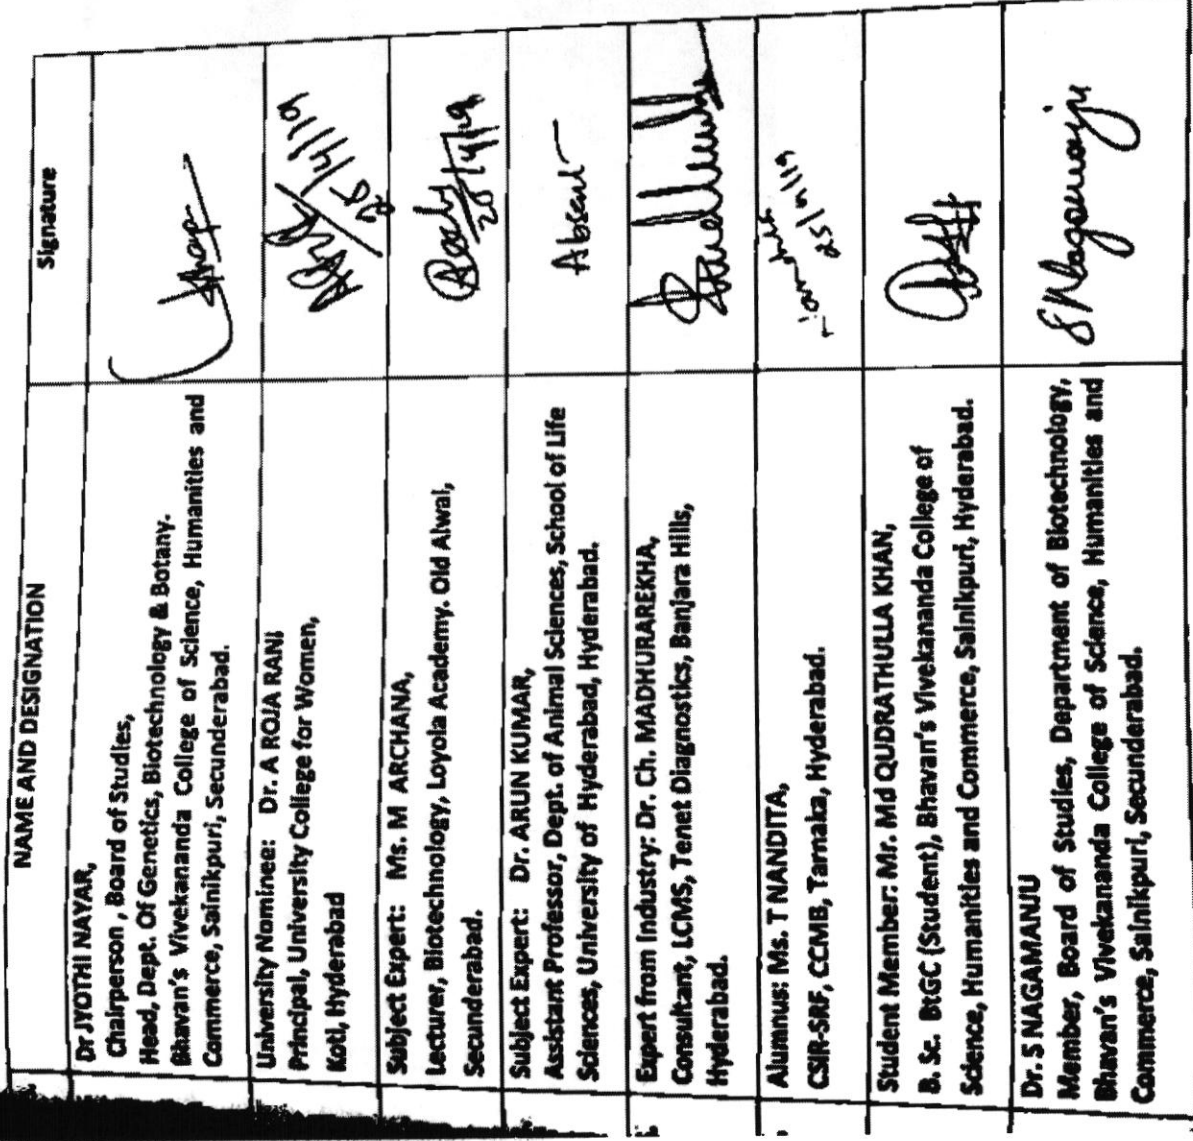 NAME AND DESIGNATION
Signature
Dr JYOTHI NAYAR,
Chairperson , Board of Studies,
Head, Dept. Of Genetics, Biotechnology & Botany.
Bhavan's Vivekananda College of Science, Humanities and
Commerce, Sainikpuri, Secunderabad.
University Nominee: Dr. A ROJA RANI
Principal, University College for Women,
Koti, Hyderabad
25/4/19
Subject Expert: Ms. M ARCHANA,
Lecturer, Biotechnology, Loyola Academy. Old Alwal,
Secunderabad.
25/4/19
Subject Expert: Dr. ARUN KUMAR,
Assistant Professor, Dept. of Animal Sciences, School of Life
Sciences, University of Hyderabad, Hyderabad.
Absent
Expert from Industry: Dr. Ch. MADHURAREKHA,
Consultant, LCMS, Tenet Diagnostics, Banjara Hills,
Hyderabad.
Alumnus: Ms. T NANDITA,
CSIR-SRF, CCMB, Tarnaka, Hyderabad.
25/4/19
Student Member: Mr. Md QUDRATHULLA KHAN,
B. Sc. BtGC (Student), Bhavan's Vivekananda College of
Science, Humanities and Commerce, Sainikpuri, Hyderabad.
Dr. S NAGAMANJU
Member, Board of Studies, Department of Biotechnology,
Bhavan's Vivekananda College of Science, Humanities and
Commerce, Sainikpuri, Secunderabad.
S Nagamanju